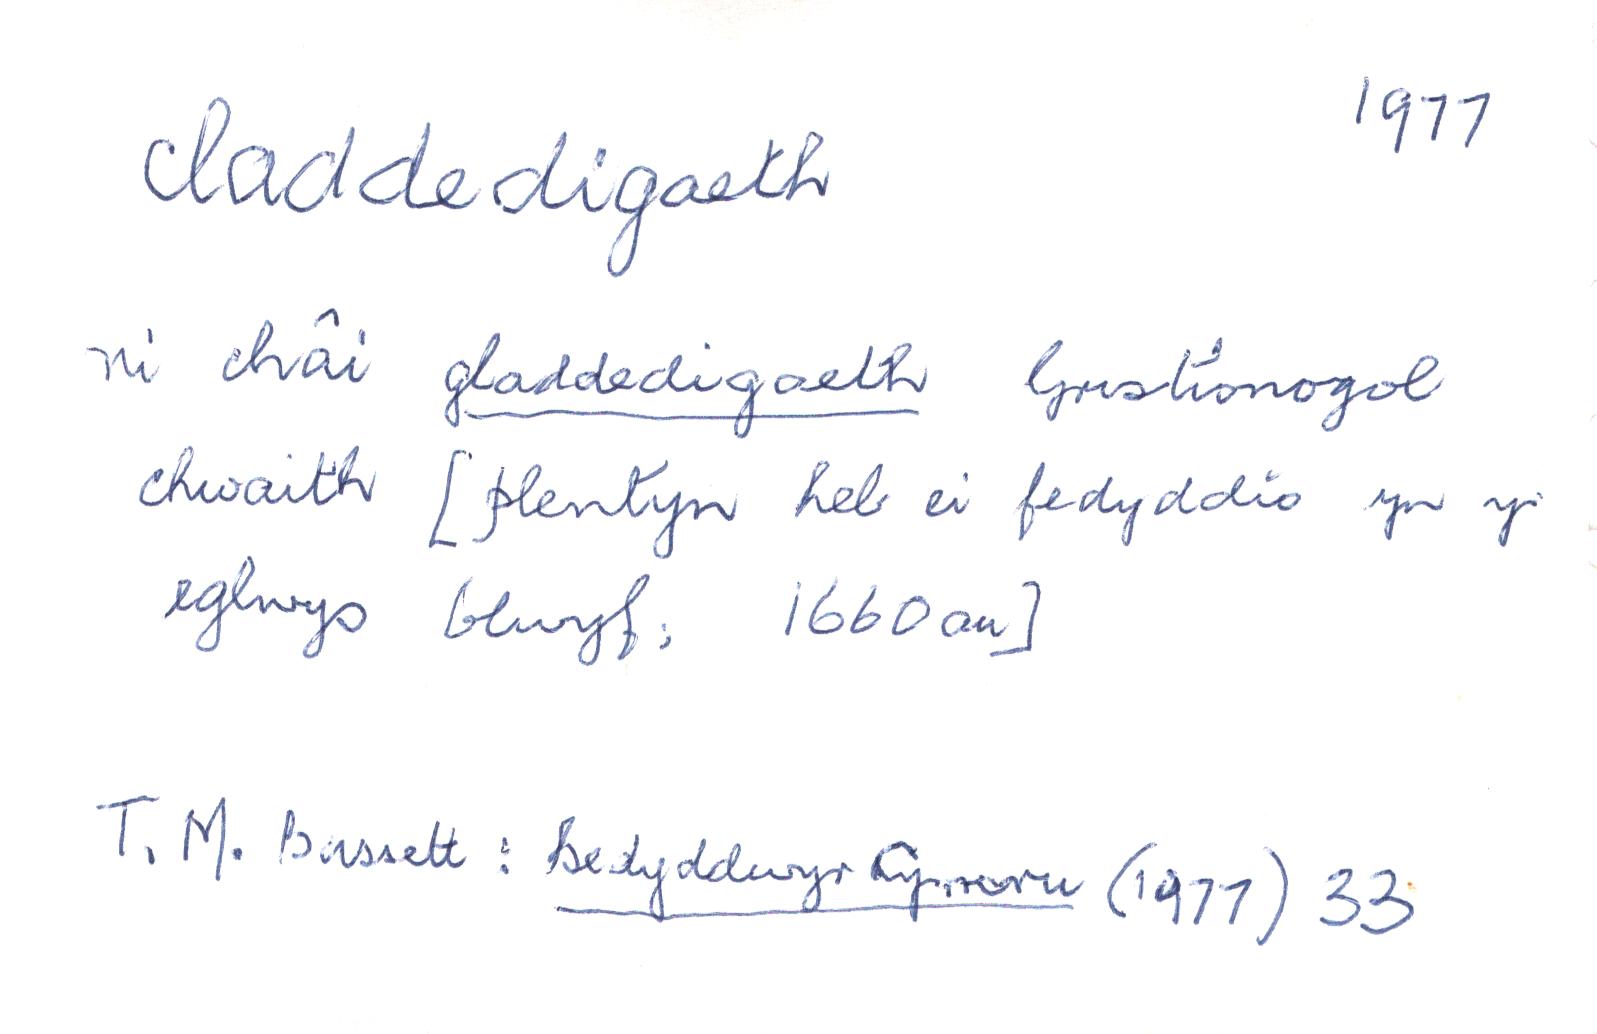 1977
claddedigaeth
ni châi gladdedigaeth Gristionogol
chwaith [plentyn heb ei fedyddio yn yr
eglwys blwyf; 1660au]
T. M. Bassett : Bedyddwyr Cymru (1977) 33